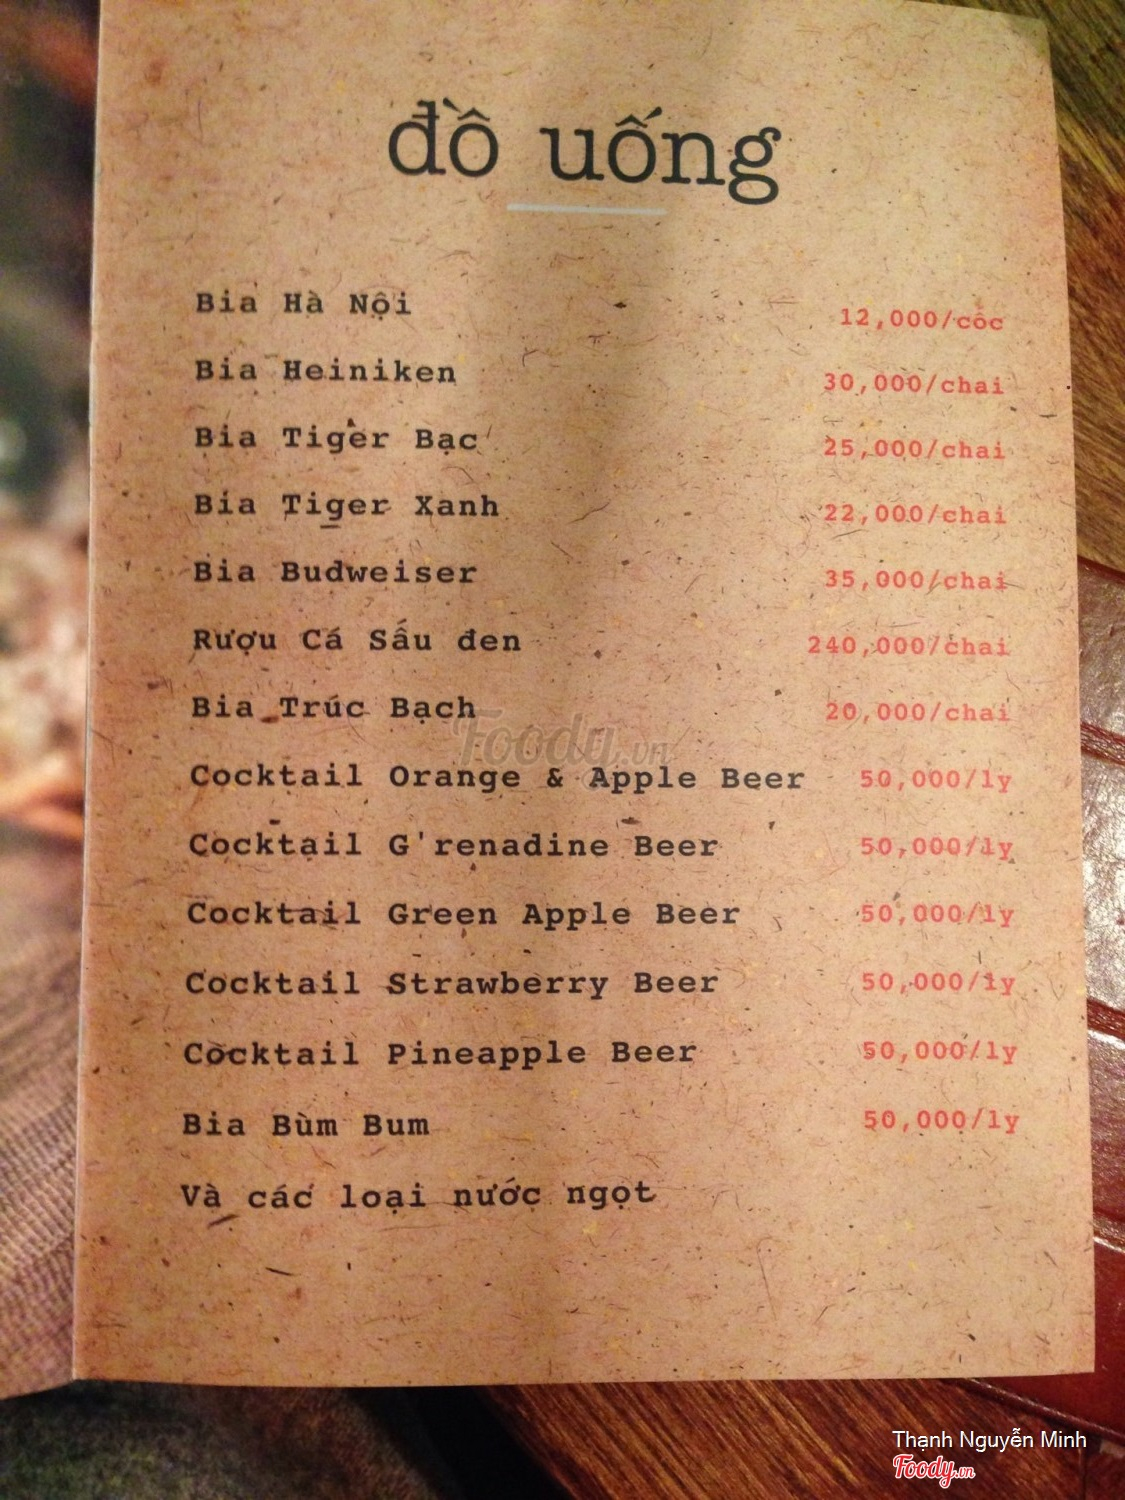 đồ uống
Bia Hà Nội 12,000/cốc
Bia Heiniken 30,000/chai
Bia Tiger Bạc 25,000/chai
Bia Tiger Xanh 22,000/chai
Bia Budweiser 35,000/chai
Rượu Cá Sấu đen 240,000/chai
Bia Trúc Bạch 20,000/chai
Foody.vn
Cocktail Orange & Apple Beer 50,000/ly
Cocktail G'renadine Beer 50,000/ly
Cocktail Green Apple Beer 50,000/ly
Cocktail Strawberry Beer 50,000/ly
Cocktail Pineapple Beer 50,000/ly
Bia Bùm Bum 50,000/ly
Và các loại nước ngọt
Thạnh Nguyễn Minh
Foody.vn